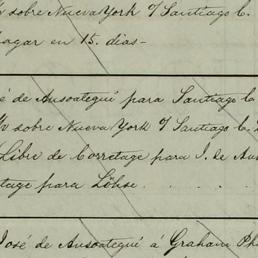 sobre Nueva York o/ Santiago C.
pagar en 15. dias-
é de Ausoategui para Santiago C.
sobre Nueva York o/ Santiago C.
Libre de Corretage para J. de Aus
tage para Löhse . . . .
José de Ausoategui á Graham Ph